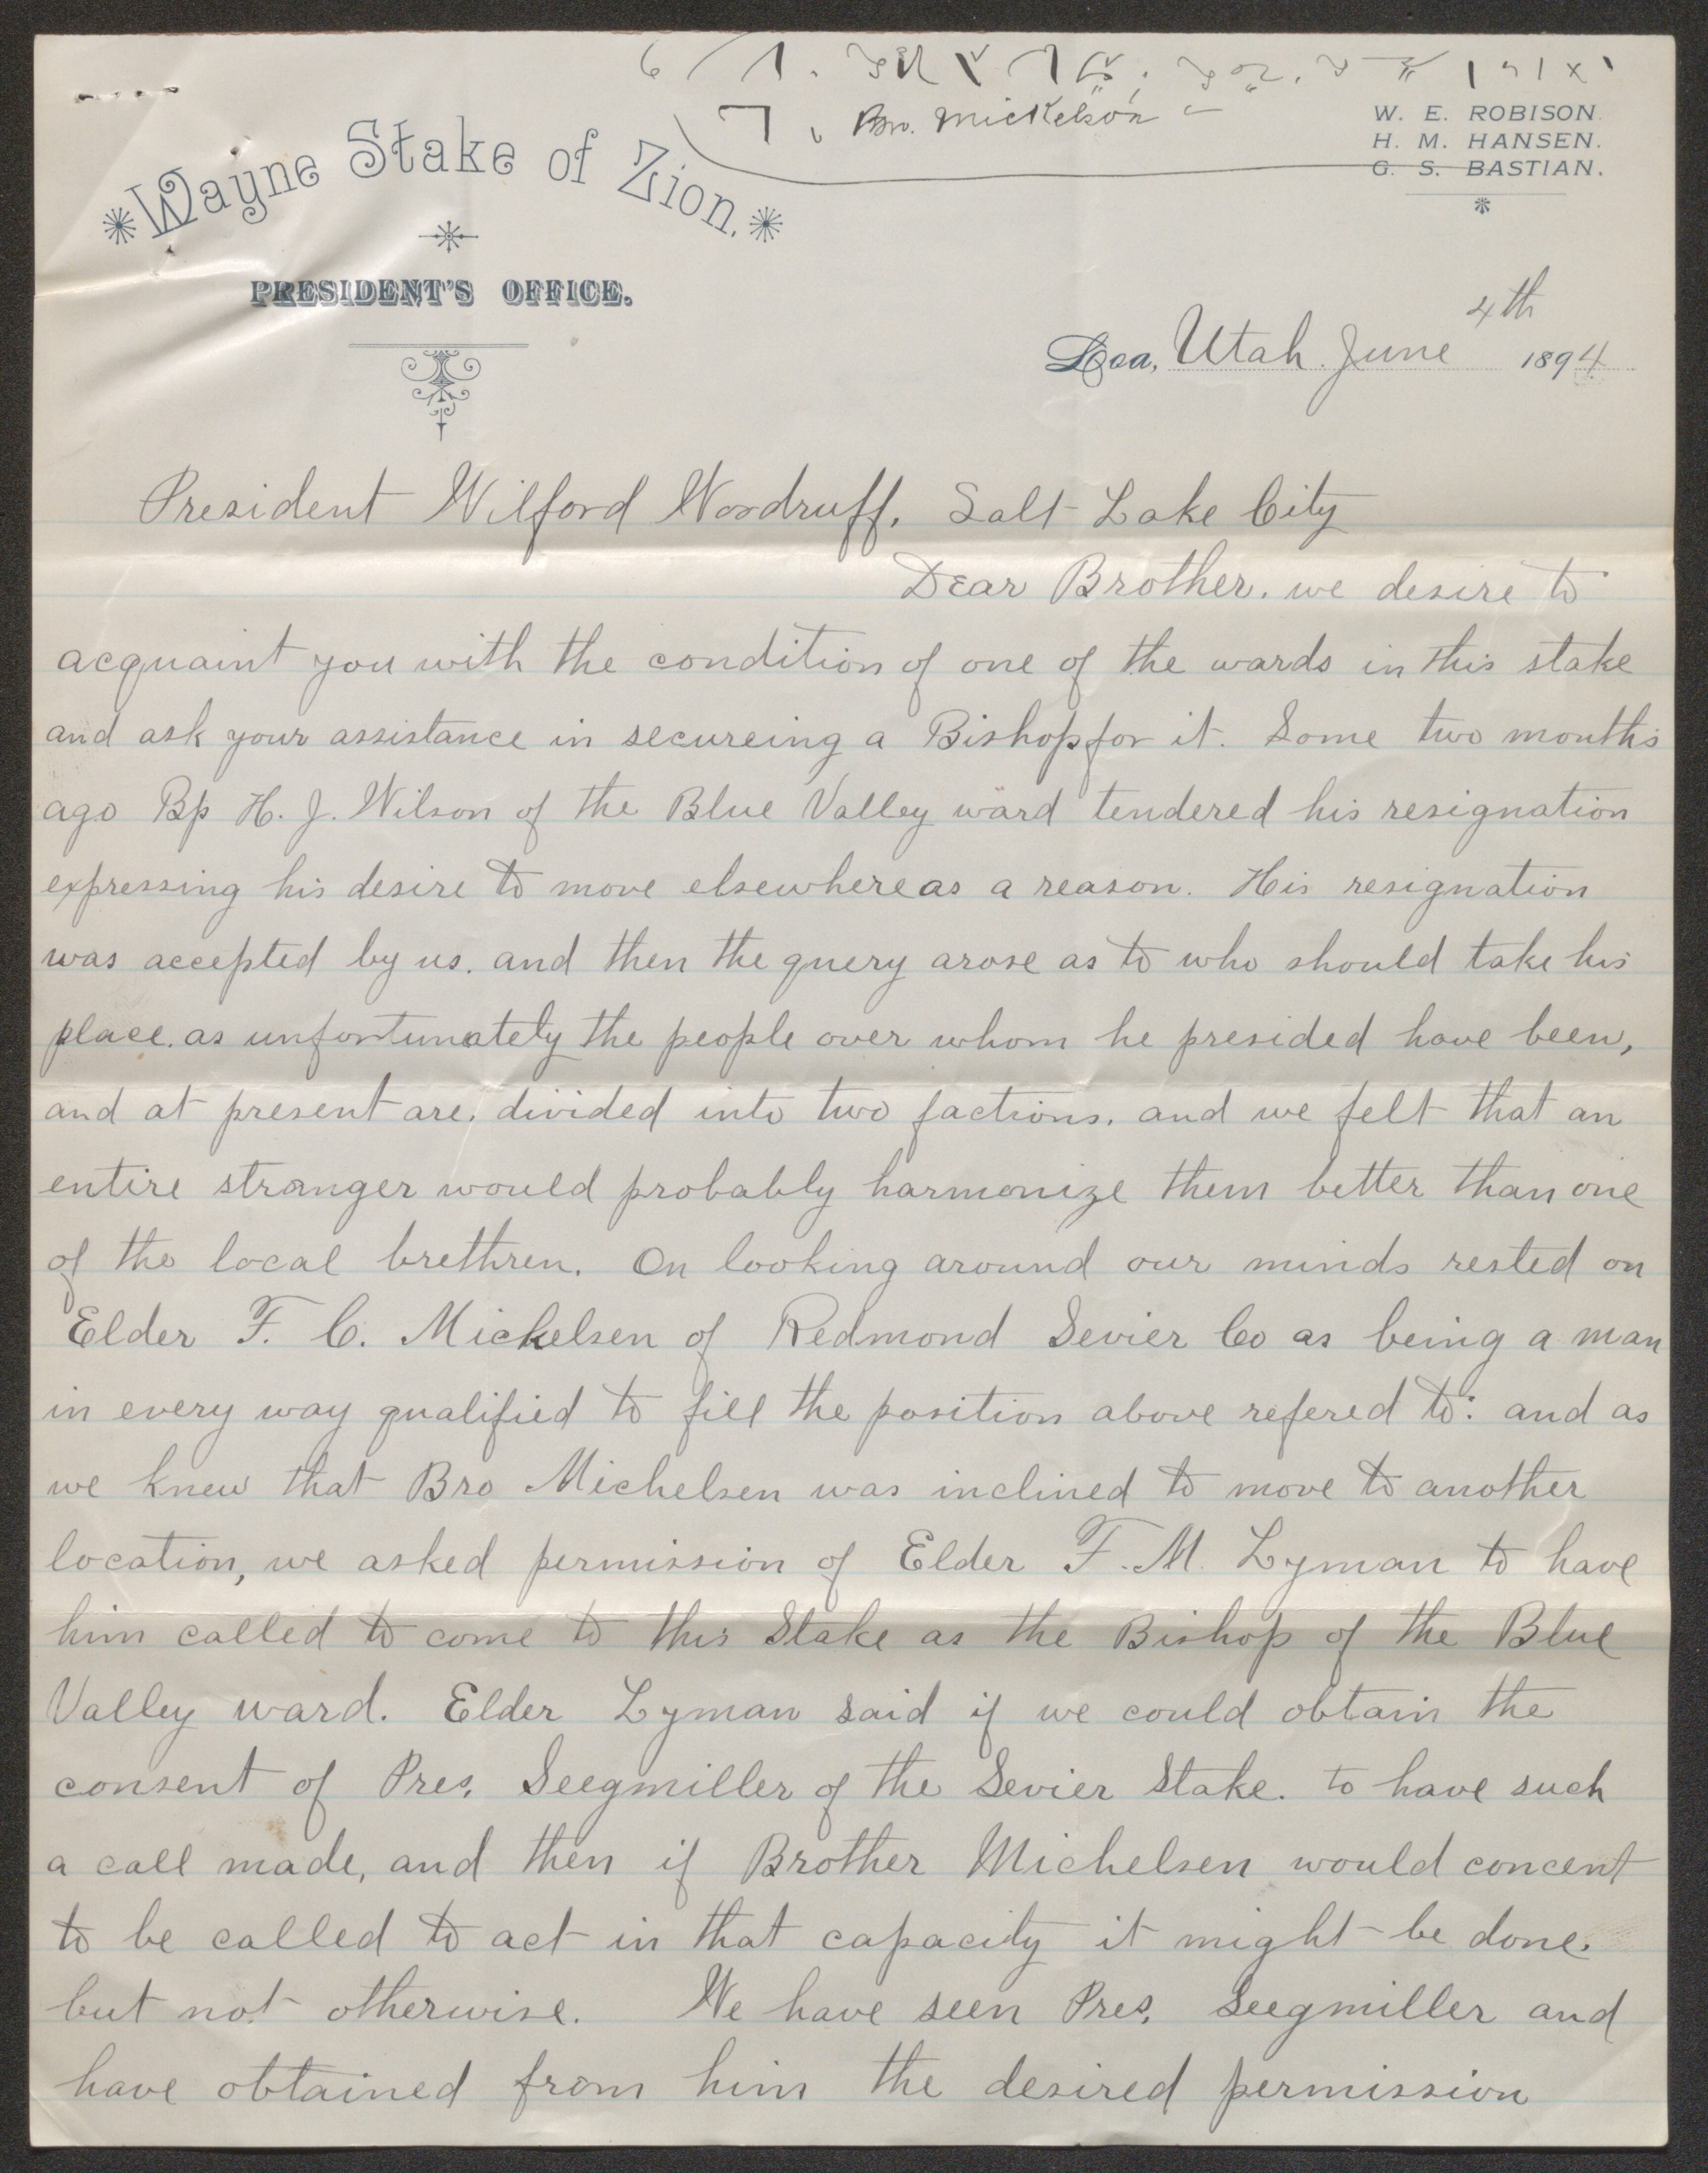 Bro. Mickelson
W. E. ROBISON.
H. M. HANSEN.
G. S. BASTIAN.
Wayne Stake of Zion.
PRESIDENT'S OFFICE.
Loa, Utah. June 4th 1894
President Wilford Woodruff. Salt Lake City
Dear Brother. we desire to
acquaint you with the condition of one of the wards in this stake
and ask your assistance in secureing a Bishop for it. Some two months
ago Bp H. J. Wilson of the Blue Valley ward tendered his resignation
expressing his desire to move elsewhere as a reason. His resignation
was accepted by us. and then the query arose as to who should take his
place. as unfortunately the people over whom he presided have been,
and at present are. divided into two factions. and we felt that an
entire stranger would probably harmonize them better than one
of the local brethren. On looking around our minds rested on
Elder F. C. Mickelsen of Redmond Sevier Co as being a man
in every way qualified to fill the position above refered to: and as
we knew that Bro Michelsen was inclined to move to another
location, we asked permission of Elder F. M. Lyman to have
him called to come to this Stake as the Bishop of the Blue
Valley ward. Elder Lyman said if we could obtain the
consent of Pres. Seegmiller of the Sevier Stake. to have such
a call made, and then if Brother Michelsen would concent
to be called to act in that capacity it might be done.
but not otherwise. We have seen Pres. Seegmiller and
have obtained from him the desired permission